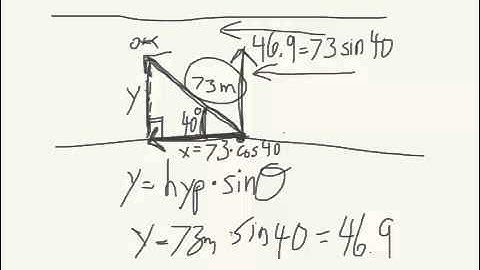 46.9=73sin40
73m
y
40°
x=73·cos40
y=hyp·sinθ
y=73m·sin40=46.9